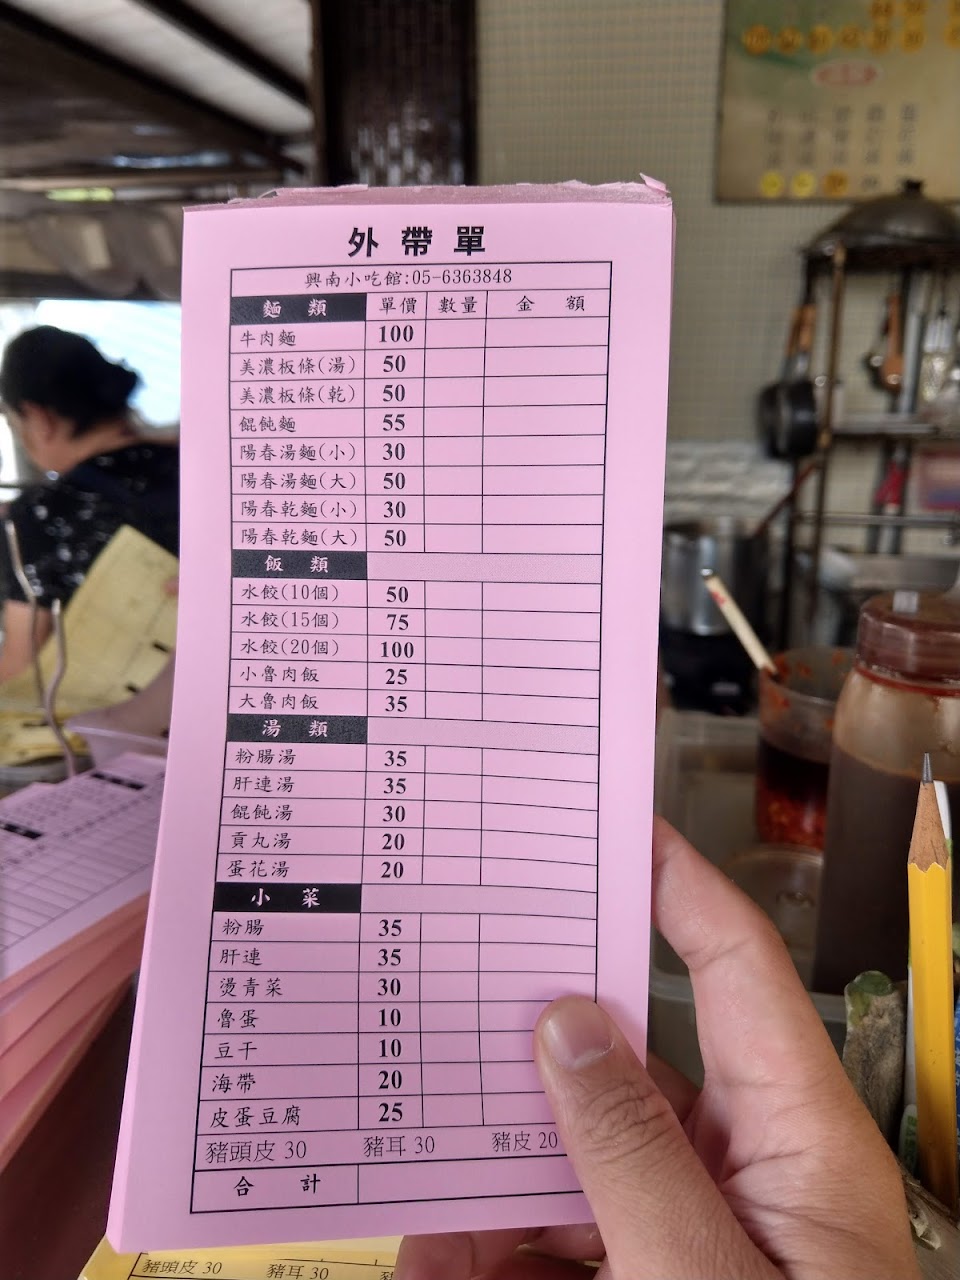 外帶單
興南小吃館:05-6363848
麵類 單價 數量 金額
牛肉麵 100
美濃板條(湯) 50
美濃板條(乾) 50
餛飩麵 55
陽春湯麵(小) 30
陽春湯麵(大) 50
陽春乾麵(小) 30
陽春乾麵(大) 50
飯類
水餃(10個) 50
水餃(15個) 75
水餃(20個) 100
小魯肉飯 25
大魯肉飯 35
湯類
粉腸湯 35
肝連湯 35
餛飩湯 30
貢丸湯 20
蛋花湯 20
小菜
粉腸 35
肝連 35
燙青菜 30
魯蛋 10
豆干 10
海帶 20
皮蛋豆腐 25
豬頭皮 30 豬耳 30 豬皮 20
合計
豬頭皮 30 豬耳 30